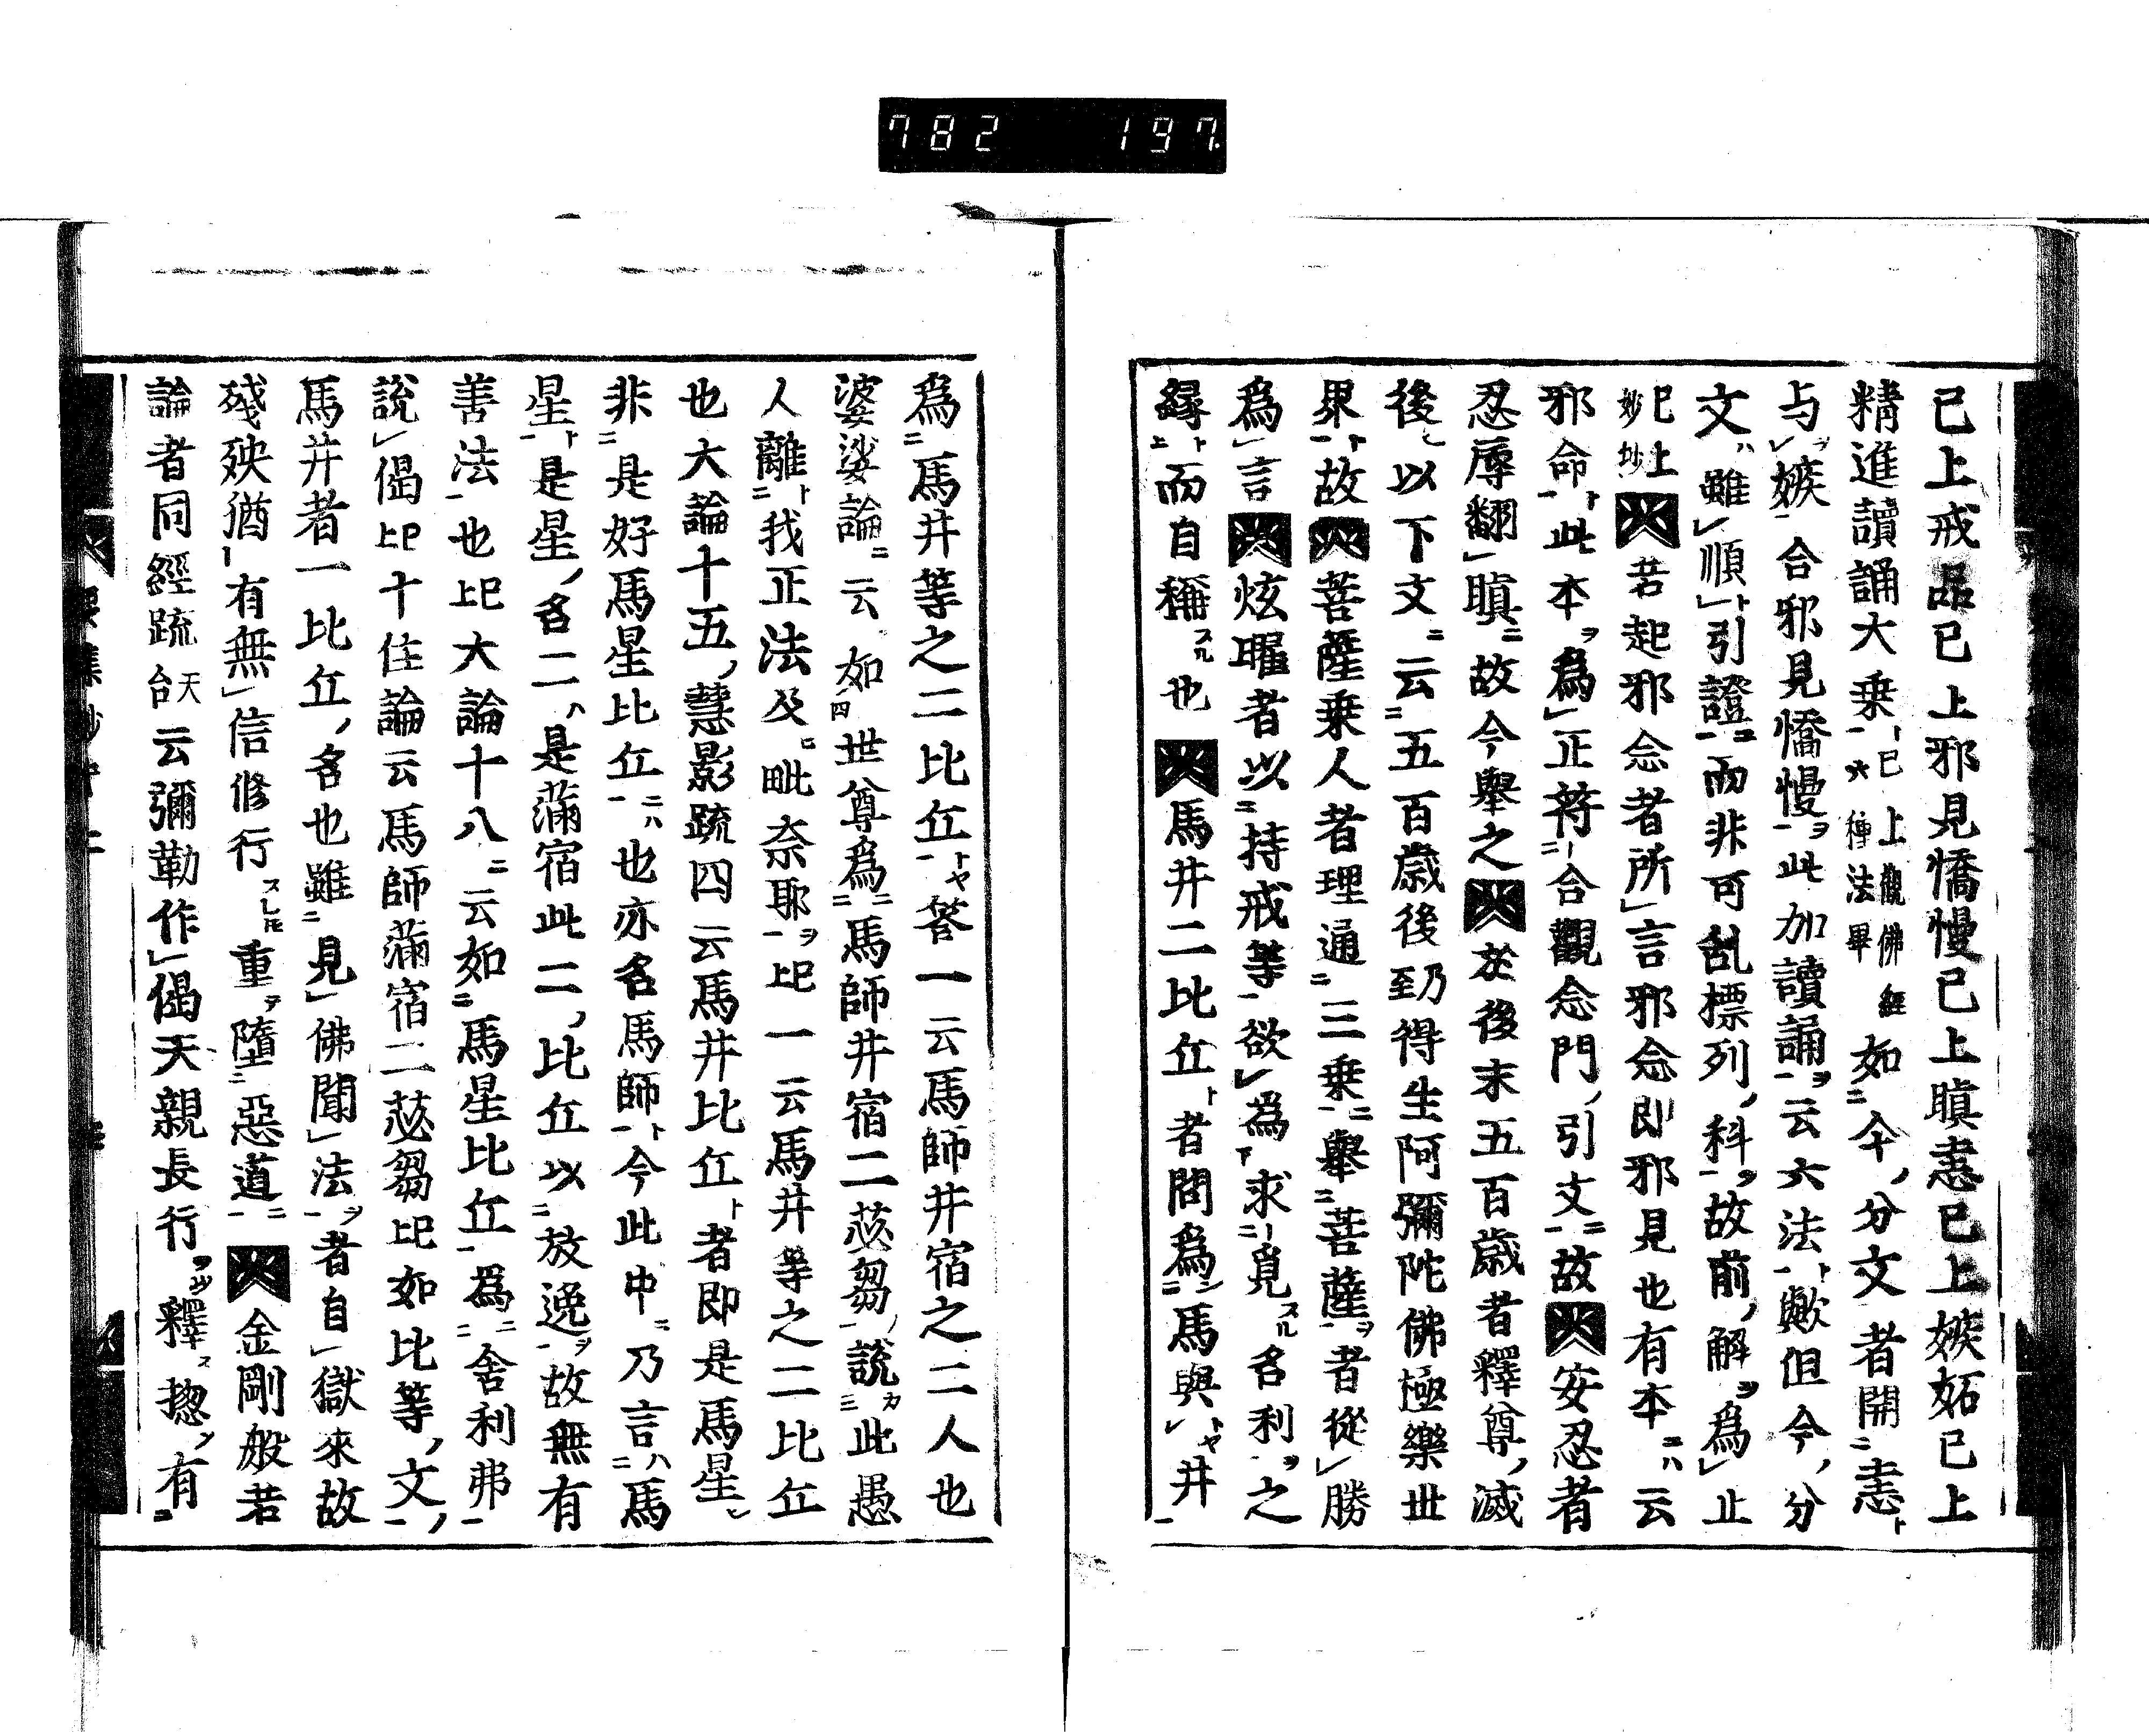 782 197.
已上戒品已上邪見憍慢已上瞋恚已上嫉妬已上
精進讀誦大乗已上觀佛經六種法畢如今分文者開恚
与嫉合邪見憍慢此加讀誦云六法歟但今分
文雖順引證而非可乱標列科故前解為止
已上妙抄若起邪念者所言邪念即邪見也有本云
邪命此本為正符合觀念門引文故安忍者
忍辱翻瞋故今舉之於後末五百歳者釋尊滅
後以下文云五百歳後乃至得生阿彌陀佛極樂世
界故菩薩乗人者理通三乗舉菩薩者從勝
為言炫曜者以持戒等欲為求覓名利之
縁而自稱也馬井二比丘者問為馬與井
為馬井等之二比丘答一云馬師井宿之二人也
婆娑論云如世尊為馬師井宿二苾芻説此愚
人離我正法及毗奈耶已上一云馬井等之二比丘
也大論十五慧影疏四云馬井比丘者即是馬星
非是好馬星比丘也亦名馬師今此中乃言馬
星是星名二是滿宿此二比丘以放逸故無有
善法也已上大論十八云如馬星比丘為舍利弗
說偈已上十住論云馬師滿宿二苾芻已上如比等文
馬井者一比丘名也雖見佛聞法者自獄來故
殘殃猶有無信修行重墮惡道金剛般若
論者同經疏天台云彌勒作偈天親長行釋揔有